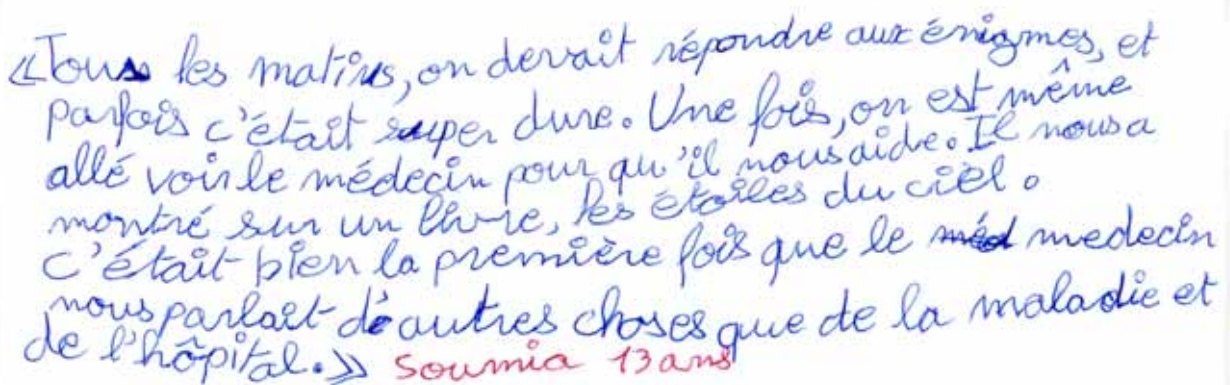 «Tous les matins, on devait répondre aux énigmes, et
parfois c'était super dure. Une fois, on est même
allé voir le médecin pour qu'il nous aide. Il nous a
montré sur un livre, les étoiles du ciel.
C'était bien la première fois que le méd medecin
nous parlait d'autres choses que de la maladie et
de l'hôpital.» Soumia 13 ans